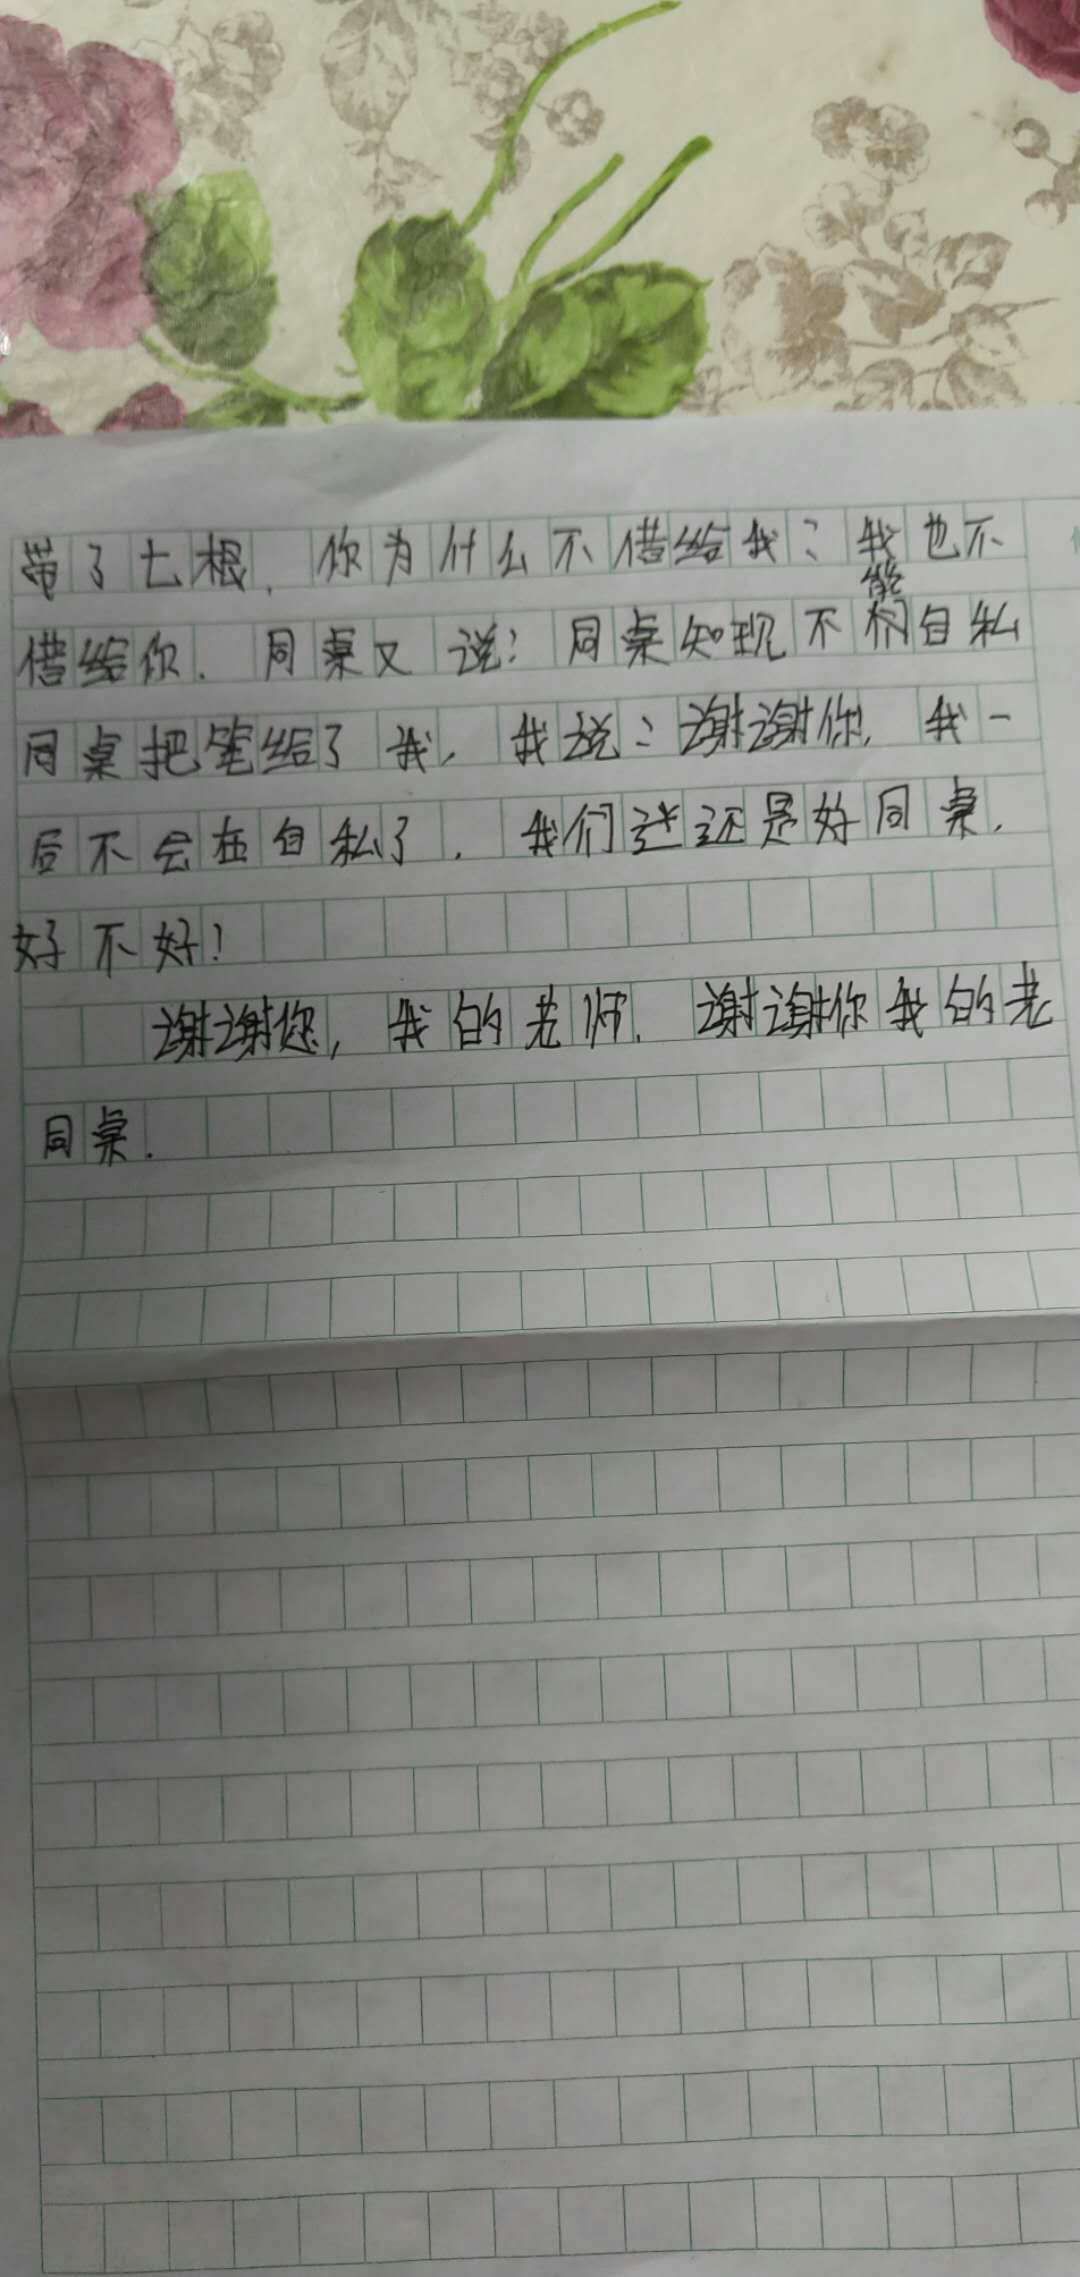 带了七根，你为什么不借给我？我也不
借给你．同桌又说：同桌知现不能自私
同桌把笔给了我，我说：谢谢你，我一
后不会在自私了．我们还是好同桌．
好不好！
谢谢您，我的老师．谢谢你我的老
同桌．